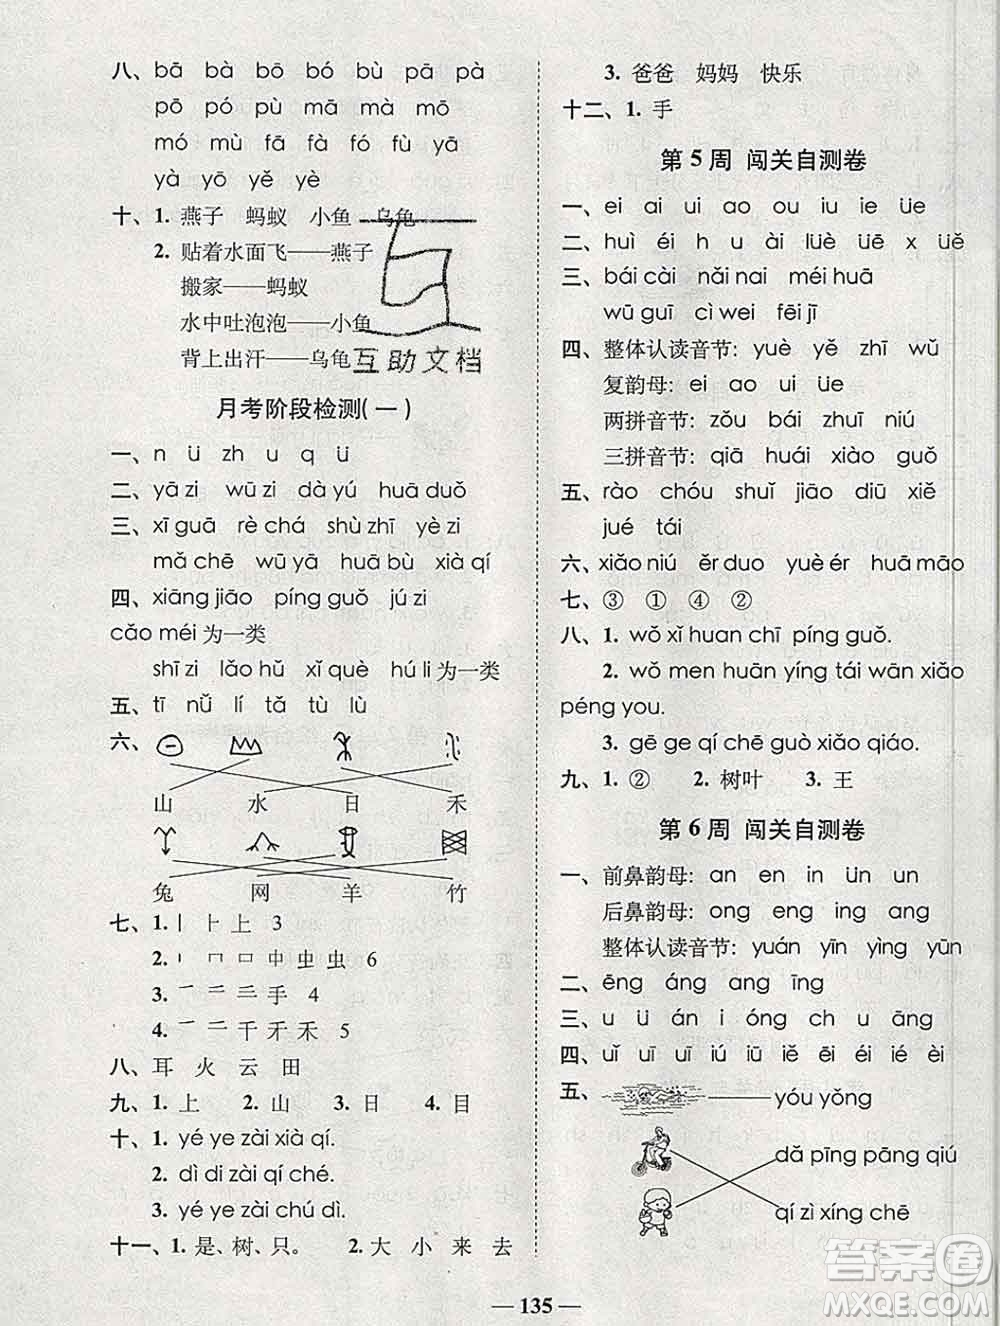 八、bā bà bó bù pā pà
pō pó pù mā mà mō
mó mù fā fà fó yā
yà yō yě yè
十、1. 燕子 蚂蚁 小鱼 乌龟
2. 贴着水面飞——燕子
搬家——蚂蚁
水中吐泡泡——小鱼
背上出汗——乌龟
互助文档
月考阶段检测(一)
一、n ü zh u q ü
二、yā zi wū zi dà yú huā duǒ
三、xī guā rè chá shù zhī yè zi
mǎ chē wū yā huā bù xià qí
四、xiāng jiāo píng guǒ jú zi
cǎo méi 为一类
shī zi lǎo hǔ xǐ què hú li 为一类
五、tī nǚ lí tǎ tù lù
六、
山 水 日 禾
兔 网 羊 竹
七、1. 丨 ⺊ 上 3
2. 丨 冂 口 中 虫 虫 6
3. 一 二 三 手 4
4. 一 二 千 矛 禾 5
八、耳 火 云 田
九、1. 上 2. 山 3. 日 4. 目
十、1. yé ye zài xià qí.
2. dì di zài qí chē.
3. yé ye zài chú dì.
十一、1. 是、树、只。 2. 大 小 来 去
3. 爸爸 妈妈 快乐
十二、1. 手
第 5 周 闯关自测卷
一、ei ai ui ao ou iu ie üe
二、huì éi h u ài lüè üē x üě
三、bái cài nǎi nai méi huā
wū guī cì wei fēi jī
四、整体认读音节: yuè yě zhī wǔ
复韵母: ei ao ui üe
两拼音节: zǒu bái zhuī niú
三拼音节: qiā huái xiào guǒ
五、rào chóu shuǐ jiāo diū xiě
jué tái
六、xiǎo niú ěr duo yuè ér huā māo
七、③ ① ④ ②
八、1. wǒ xǐ huan chī píng guǒ.
2. wǒ men huān yíng tái wān xiǎo
péng you.
3. gē ge qí chē guò xiǎo qiáo.
九、1. ② 2. 树叶 3. 王
第 6 周 闯关自测卷
一、前鼻韵母: an en in ün un
后鼻韵母: ong eng ing ang
整体认读音节: yuán yīn yìng yūn
二、ēng áng ang īng
三、u ü án i óng ch u āng
四、uǐ uī uī iú iū iě iē ié èi
五、
yóu yǒng
dǎ pīng pāng qiú
qí zì xíng chē
— 135 —
答案圈
MXQE.COM